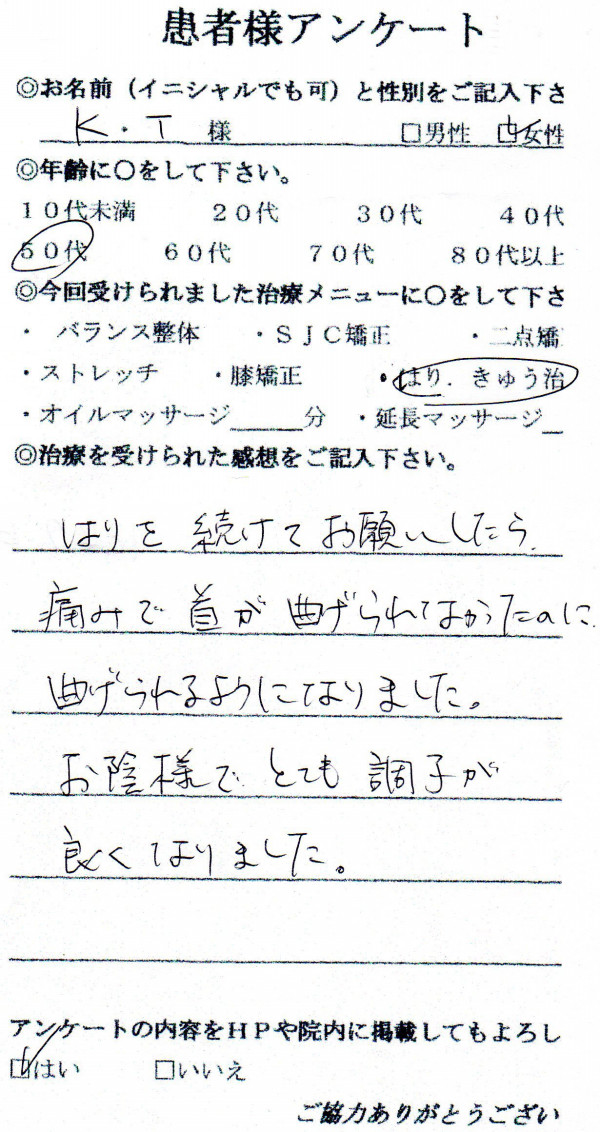 患者様アンケート
◎お名前（イニシャルでも可）と性別をご記入下さ
K・T 様 □男性 □女性
◎年齢に〇をして下さい。
10代未満 20代 30代 40代
50代 60代 70代 80代以上
◎今回受けられました治療メニューに〇をして下さ
・ バランス整体 ・ＳＪＣ矯正 ・二点矯
・ストレッチ ・膝矯正 ・はり．きゅう治
・オイルマッサージ＿＿＿分 ・延長マッサージ＿
◎治療を受けられた感想をご記入下さい。
はりを続けてお願いしたら、
痛みで首が曲げられなかったのに
曲げられるようになりました。
お陰様でとても調子が
良くなりました。
アンケートの内容をＨＰや院内に掲載してもよろし
□はい □いいえ
ご協力ありがとうござい